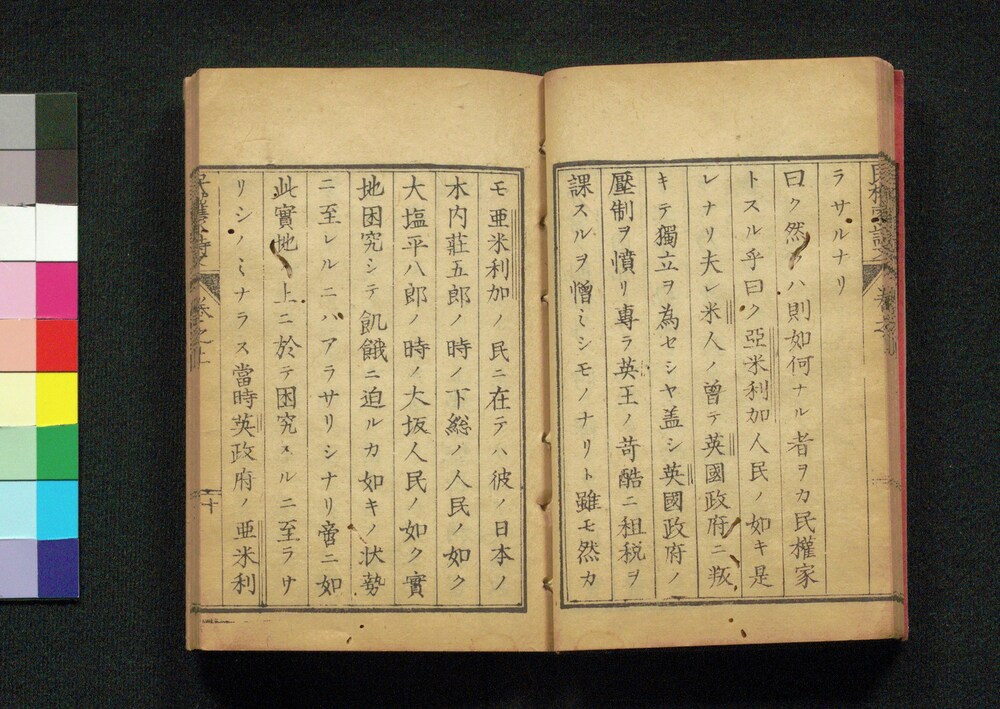 ラサルナリ
曰ク然ラハ則如何ナル者ヲカ民權家
トスル乎曰ク亞米利加人民ノ如キ是
レナリ夫レ米人ノ曽テ英國政府ニ叛
キテ獨立ヲ為セシヤ盖シ英國政府ノ
壓制ヲ憤リ專ラ英王ノ苛酷ニ租税ヲ
課スルヲ憎ミシモノナリト雖モ然カ
モ亜米利加ノ民ニ在テハ彼ノ日本ノ
木内莊五郎ノ時ノ下総ノ人民ノ如ク
大塩平八郎ノ時ノ大坂人民ノ如ク實
地困究シテ飢餓ニ迫ルカ如キノ状勢
ニ至レルニハアラサリシナリ啻ニ如
此實地ノ上ニ於テ困究スルニ至ラサ
リシノミナラス當時英政府ノ亜米利
卷之上
十